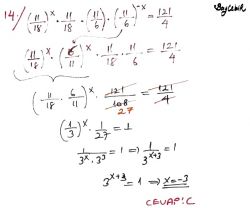 Baycebik
14/ (11/18)^x · 11/18 · (11/6) · (11/6)^-x = 121/4
(11/18)^x · (6/11)^x · 11/18 · 11/6 = 121/4
(11/18 · 6/11)^x · 121/108 = 121/4
27
(1/3)^x · 1/27 = 1
1/(3^x · 3^3) = 1 ⇒ 1/3^(x+3) = 1
3^(x+3) = 1 ⇒ x = -3
CEVAP: C